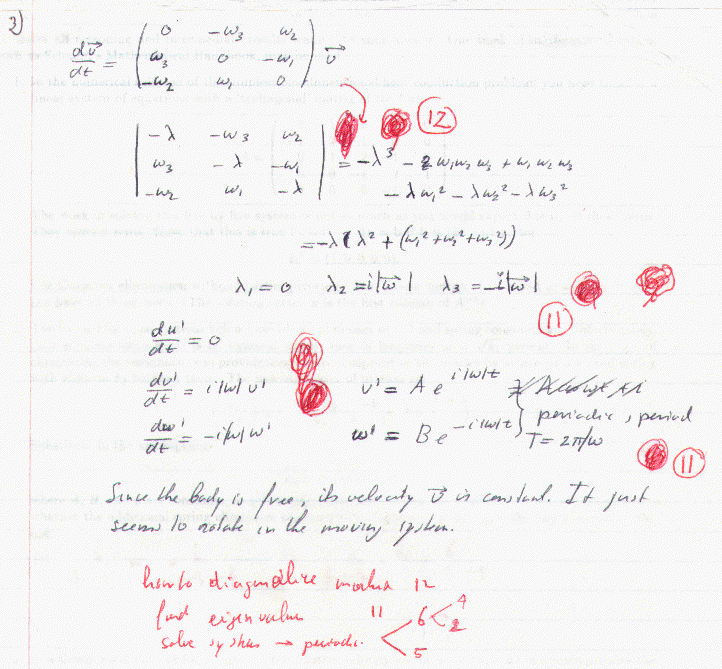 3)
dv⃗/dt = ( 0 -ω3 ω2
ω3 0 -ω1
-ω2 ω1 0 ) v⃗
12
| -λ -ω3 ω2
ω3 -λ -ω1
-ω2 ω1 -λ | = -λ³ - ω1ω2ω3 + ω1ω2ω3
- λω1² - λω2² - λω3²
= -λ(λ² + (ω1² + ω2² + ω3²))
λ1 = 0 λ2 = i|ω⃗| λ3 = -i|ω⃗|
11
du'/dt = 0
dv'/dt = i|ω| v' v' = A e^{i|ω|t}
periodic, period
dw'/dt = -i|ω| w' w' = B e^{-i|ω|t} T = 2π/ω
11
Since the body is free, its velocity v⃗ is constant. It just
seems to rotate in the moving system.
how to diagonalize matrix 12
find eigenvalues 11 6 4 2
solve system → periodic 5